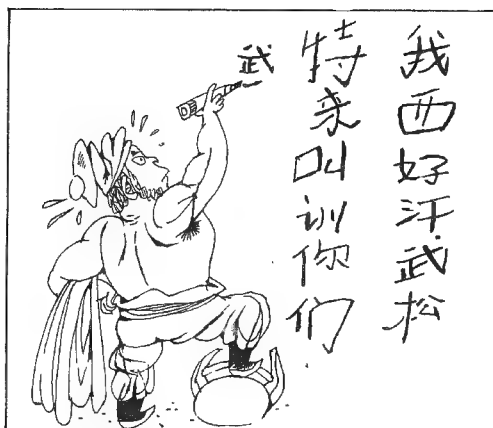 我西好汗武松
特来叫训你们
武